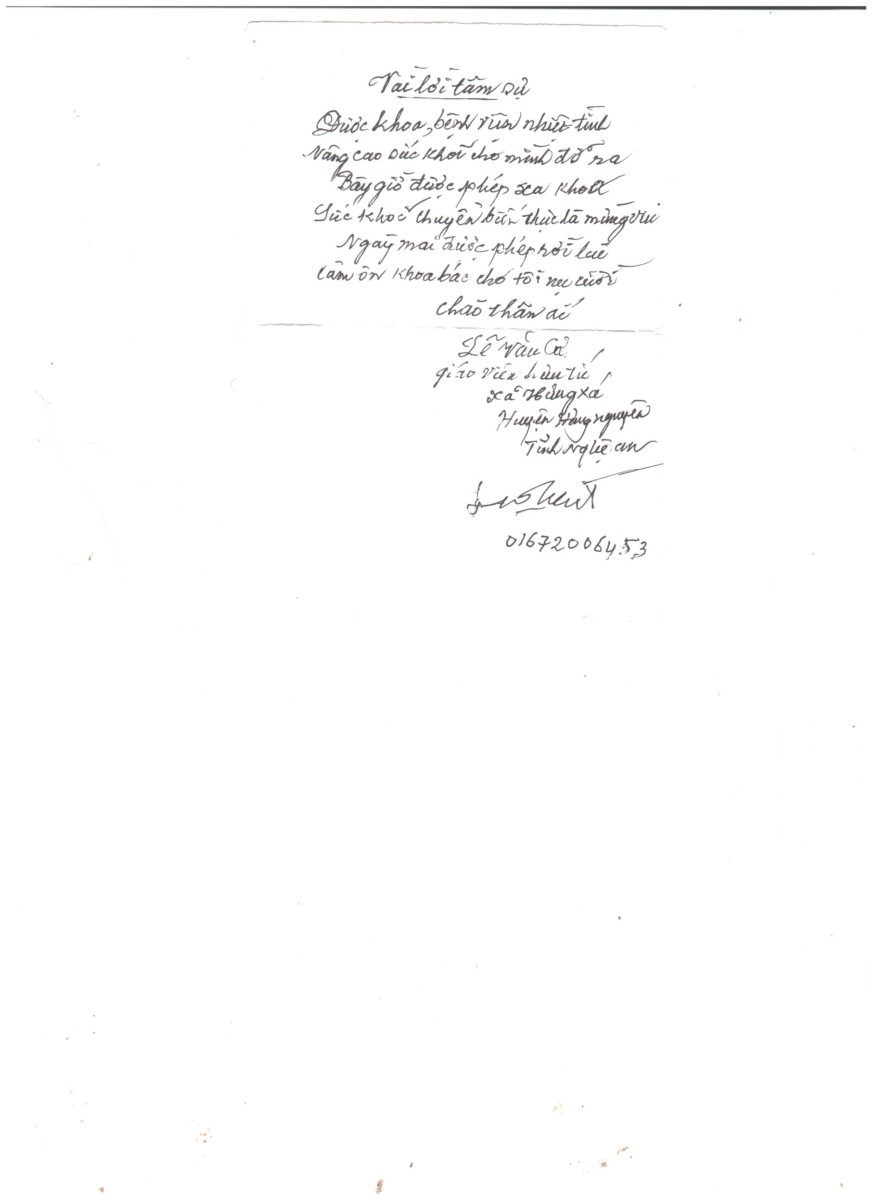 Vài lời tâm sự
Được khoa, bệnh viện nhiệt tình
Nâng cao sức khỏe cho mình đỡ ra
Bây giờ được phép xa khoa
Sức khỏe chuyển biến thực là mừng vui
Ngày mai được phép rời lui
Cảm ơn khoa bác cho tôi nụ cười
Chào thân ái
Lê Văn
giáo viên hưu trí
xã Hưng Xá
Huyện Hưng Nguyên
Tỉnh Nghệ an
01672006453